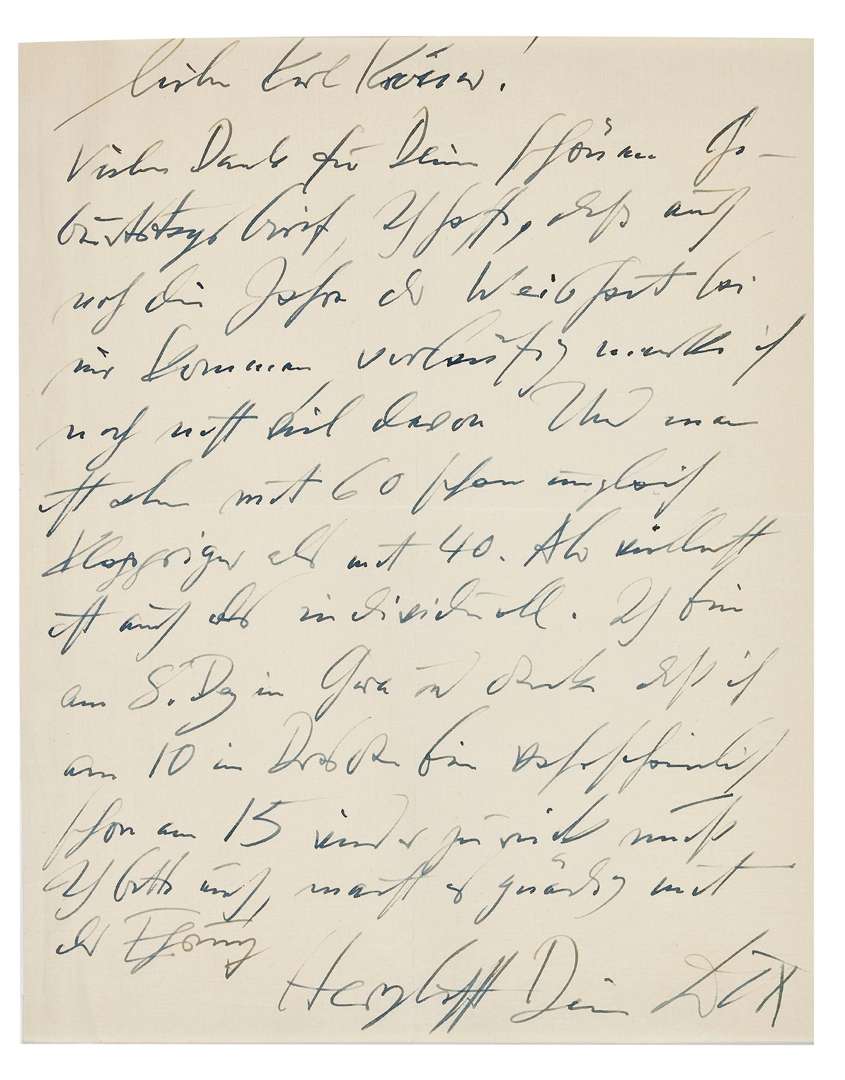 Lieber Karl Kröner!
Vielen Dank für Deinen schönen Ge-
burtstagsbrief, Ich hoffe, daß auch
noch die Jahre der Weisheit bei
mir kommen vorläufig merke ich
noch nicht viel davon Und man
ist eben mit 60 schon ungleich
klappriger als mit 40. Aber vielleicht
ist auch das individuell. Ich bin
am 8. Dez in Gera und denke daß ich
am 10 in Dresden bin wahrscheinlich
schon am 15 wieder zurück muß
Ich bitte euch, macht es gnädig mit
der Ehrung
Herzlichst Dein DIX